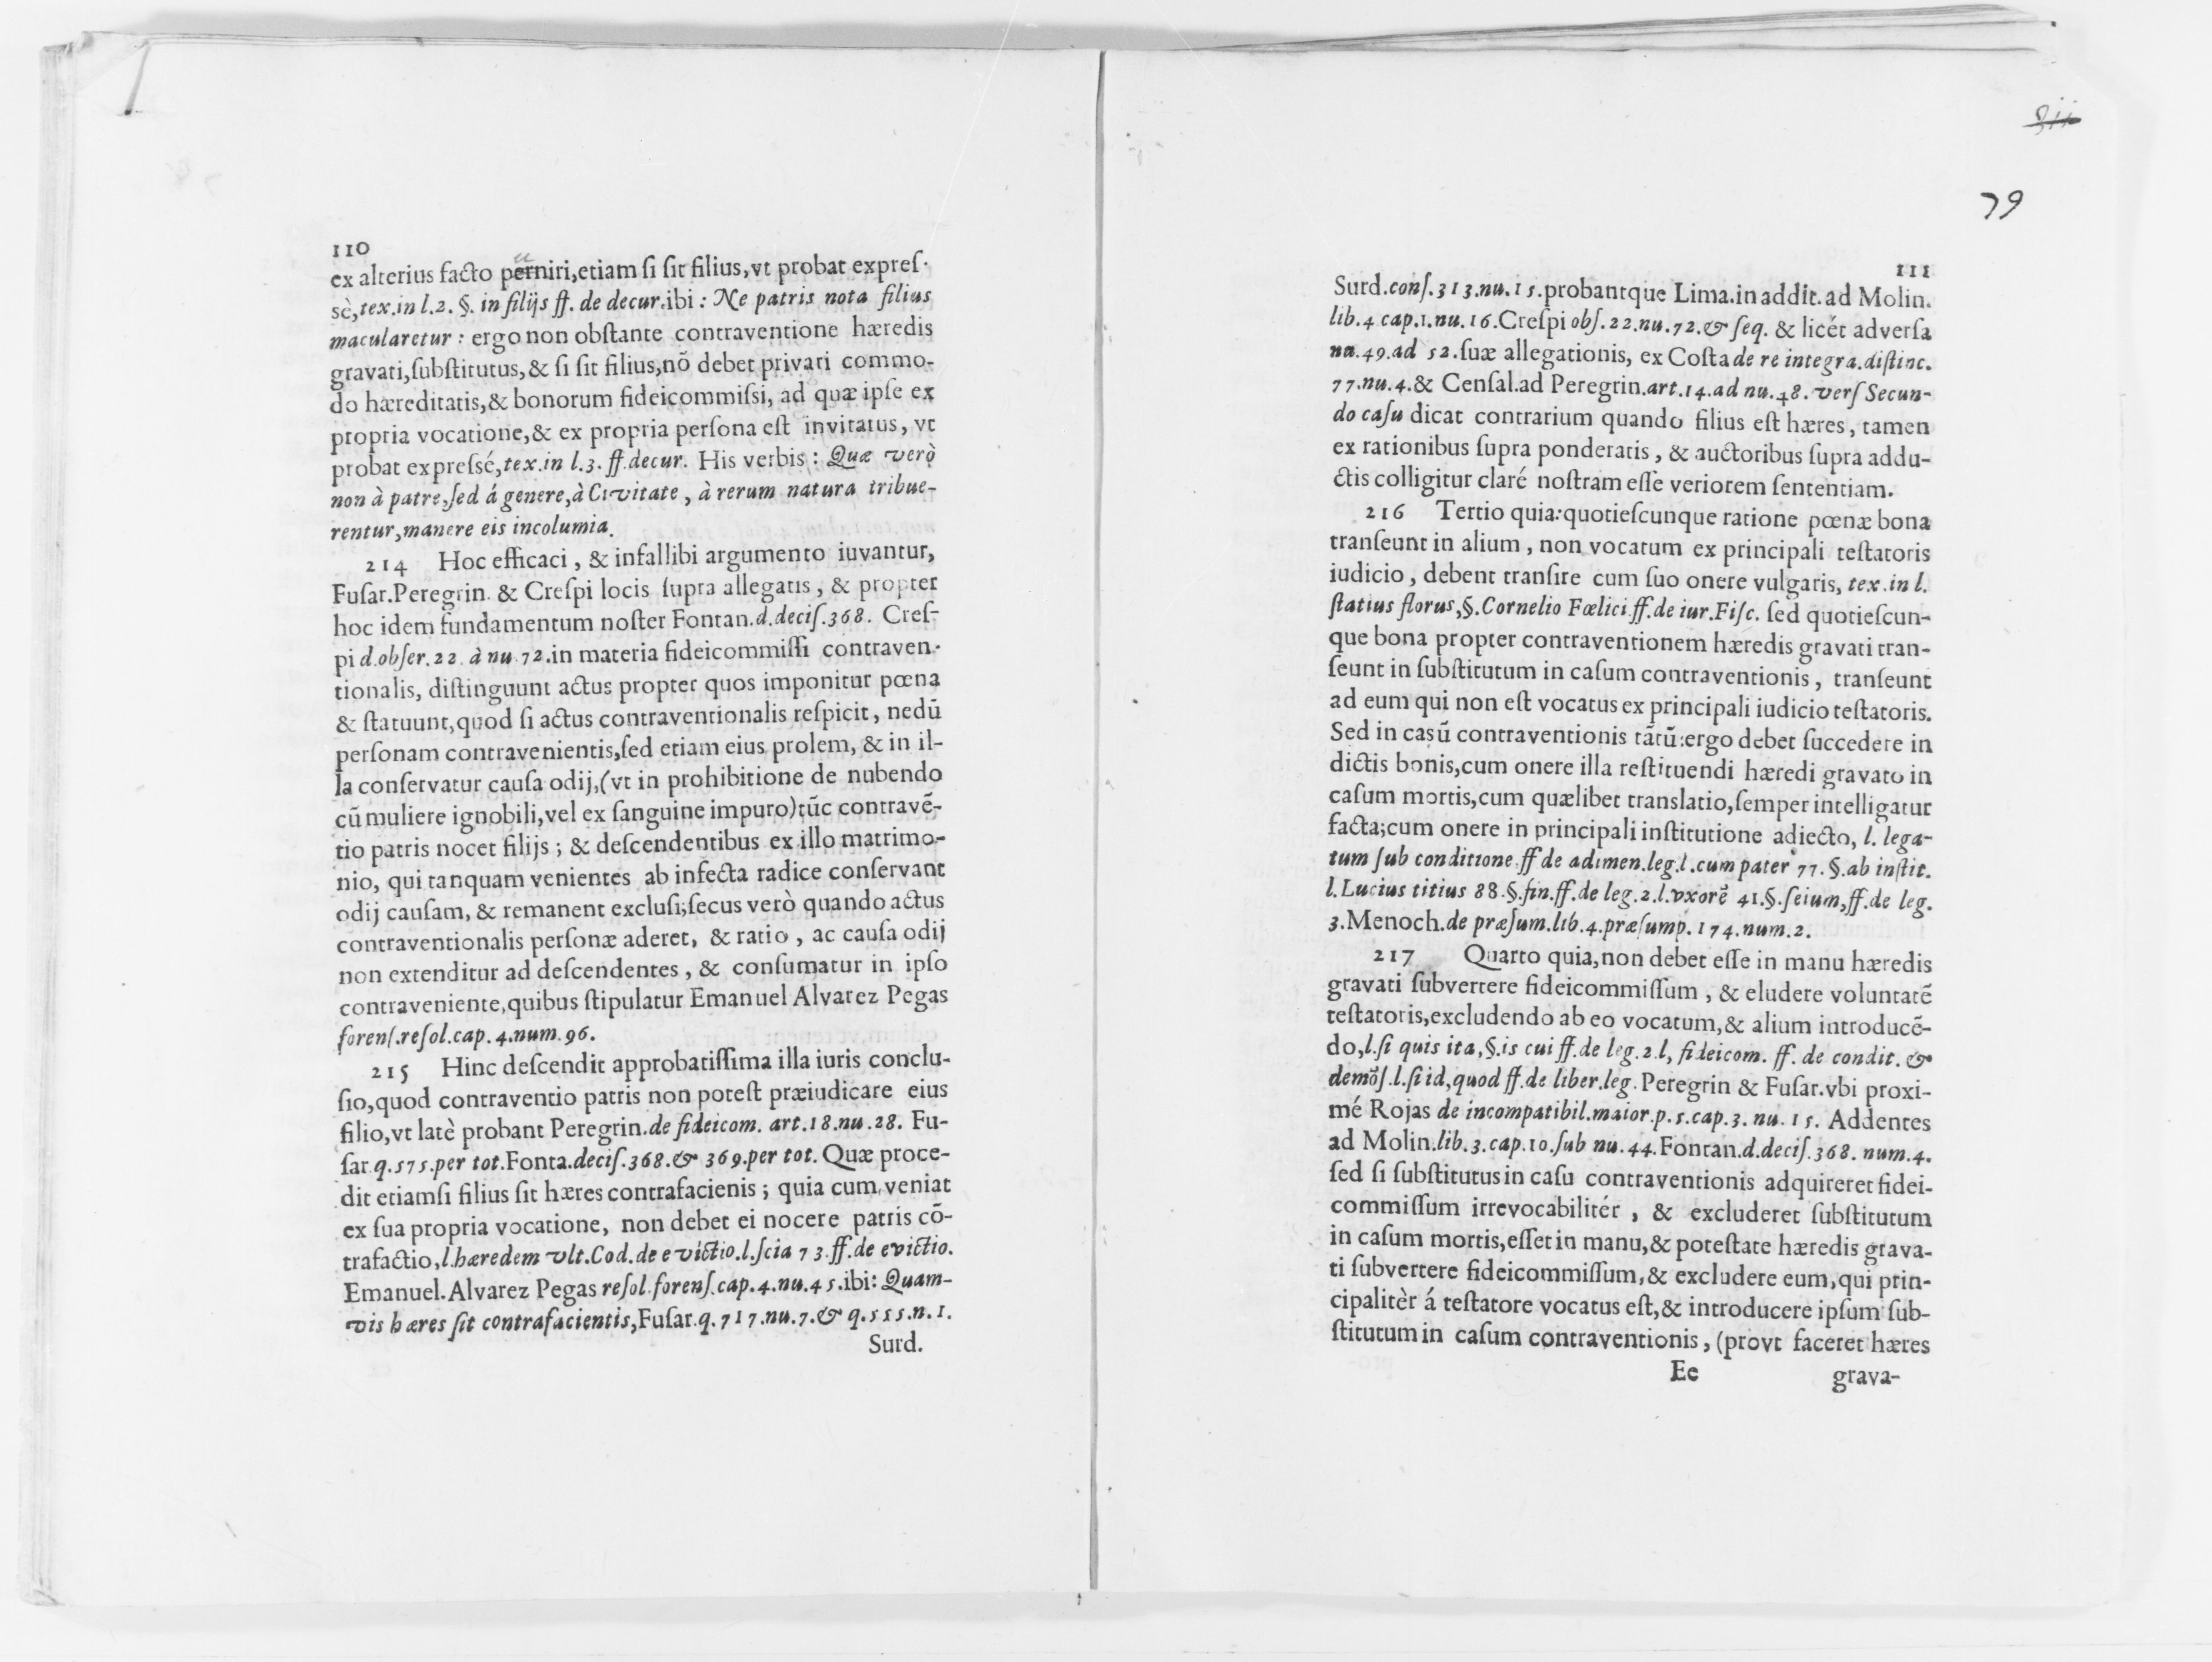 110
ex alterius facto perniri,etiam ſi ſit filius,vt probat expreſ-
sè,tex.in l.2. §. in filijs ff. de decur.ibi : Ne patris nota filius
macularetur : ergo non obſtante contraventione hæredis
gravati,ſubſtitutus,& ſi ſit filius,nõ debet privari commo-
do hæreditatis,& bonorum fideicommiſsi, ad quæ ipſe ex
propria vocatione,& ex propria perſona eſt invitatus, vt
probat expreſsé,tex.in l.3. ff.decur. His verbis : Quæ verò
non à patre,ſed á genere,à Civitate, à rerum natura tribue-
rentur,manere eis incolumia.
214 Hoc efficaci, & infallibi argumento iuvantur,
Fuſar.Peregrin. & Creſpi locis ſupra allegatis, & propter
hoc idem fundamentum noſter Fontan.d.deciſ.368. Creſ-
pi d.obſer.22. à nu.72.in materia fideicommiſſi contraven-
tionalis, diſtinguunt actus propter quos imponitur pœna
& ſtatuunt,quod ſi actus contraventionalis reſpicit, nedũ
perſonam contravenientis,ſed etiam eius prolem, & in il-
la conſervatur cauſa odij,(vt in prohibitione de nubendo
cũ muliere ignobili,vel ex ſanguine impuro)tũc contravẽ-
tio patris nocet filijs ; & deſcendentibus ex illo matrimo-
nio, qui tanquam venientes ab infecta radice conſervant
odij cauſam, & remanent excluſi;ſecus verò quando actus
contraventionalis perſonæ aderet, & ratio, ac cauſa odij
non extenditur ad deſcendentes, & conſumatur in ipſo
contraveniente,quibus ſtipulatur Emanuel Alvarez Pegas
forenſ.reſol.cap.4.num.96.
215 Hinc deſcendit approbatiſſima illa iuris conclu-
ſio,quod contraventio patris non poteſt præiudicare eius
filio,vt latè probant Peregrin.de fideicom. art.18.nu.28. Fu-
ſar.q.575.per tot.Fonta.deciſ.368.& 369.per tot. Quæ proce-
dit etiamſi filius ſit hæres contrafacienis ; quia cum veniat
ex ſua propria vocatione, non debet ei nocere patris cõ-
trafactio,l.hæredem vlt.Cod.de evictio.l.ſcia 73.ff.de evictio.
Emanuel.Alvarez Pegas reſol.forenſ.cap.4.nu.45.ibi: Quam-
vis hæres ſit contrafacientis,Fuſar.q.717.nu.7.& q.555.n.1.
Surd.
79
111
Surd.conſ.313.nu.15.probantque Lima.in addit.ad Molin.
lib.4 cap.1.nu.16.Creſpi obſ.22.nu.72.& ſeq. & licét adverſa
nu.49.ad 52.ſuæ allegationis, ex Coſta de re integra.diſtinc.
77.nu.4.& Cenſal.ad Peregrin.art.14.ad nu.48.verſ Secun-
do caſu dicat contrarium quando filius eſt hæres, tamen
ex rationibus ſupra ponderatis, & auctoribus ſupra addu-
ctis colligitur claré noſtram eſſe veriorem ſententiam.
216 Tertio quia:quotieſcunque ratione pœnæ bona
tranſeunt in alium, non vocatum ex principali teſtatoris
iudicio, debent tranſire cum ſuo onere vulgaris, tex.in l.
ſtatius florus,§.Cornelio Fœlici ff.de iur.Fiſc. ſed quotieſcun-
que bona propter contraventionem hæredis gravati tran-
ſeunt in ſubſtitutum in caſum contraventionis, tranſeunt
ad eum qui non eſt vocatus ex principali iudicio teſtatoris.
Sed in casũ contraventionis tãtũ:ergo debet ſuccedere in
dictis bonis,cum onere illa reſtituendi hæredi gravato in
caſum mortis,cum quælibet tranſlatio,ſemper intelligatur
facta;cum onere in principali inſtitutione adiecto, l. lega-
tum ſub conditione ff de adimen.leg.l.cum pater 77.§.ab inſtit.
l.Lucius titius 88.§.fin.ff.de leg.2.l.vxorẽ 41.§.ſeium,ff.de leg.
3.Menoch.de præſum.lib.4.præſump.174.num.2.
217 Quarto quia,non debet eſſe in manu hæredis
gravati ſubvertere fideicommiſſum, & eludere voluntatẽ
teſtatoris,excludendo ab eo vocatum,& alium introducẽ-
do,l.ſi quis ita,§.is cui ff.de leg.2.l, fideicom. ff. de condit. &
demõſ.l.ſi id,quod ff.de liber.leg.Peregrin & Fuſar.vbi proxi-
mé Rojas de incompatibil.maior.p.5.cap.3. nu. 15. Addentes
ad Molin.lib.3.cap.10.ſub nu.44.Fontan.d.deciſ.368. num.4.
ſed ſi ſubſtitutus in caſu contraventionis adquireret fidei-
commiſſum irrevocabilitér, & excluderet ſubſtitutum
in caſum mortis,eſſet in manu,& poteſtate hæredis grava-
ti ſubvertere fideicommiſſum,& excludere eum,qui prin-
cipalitèr á teſtatore vocatus eſt,& introducere ipſum ſub-
ſtitutum in caſum contraventionis, (provt faceret hæres
Ee grava-